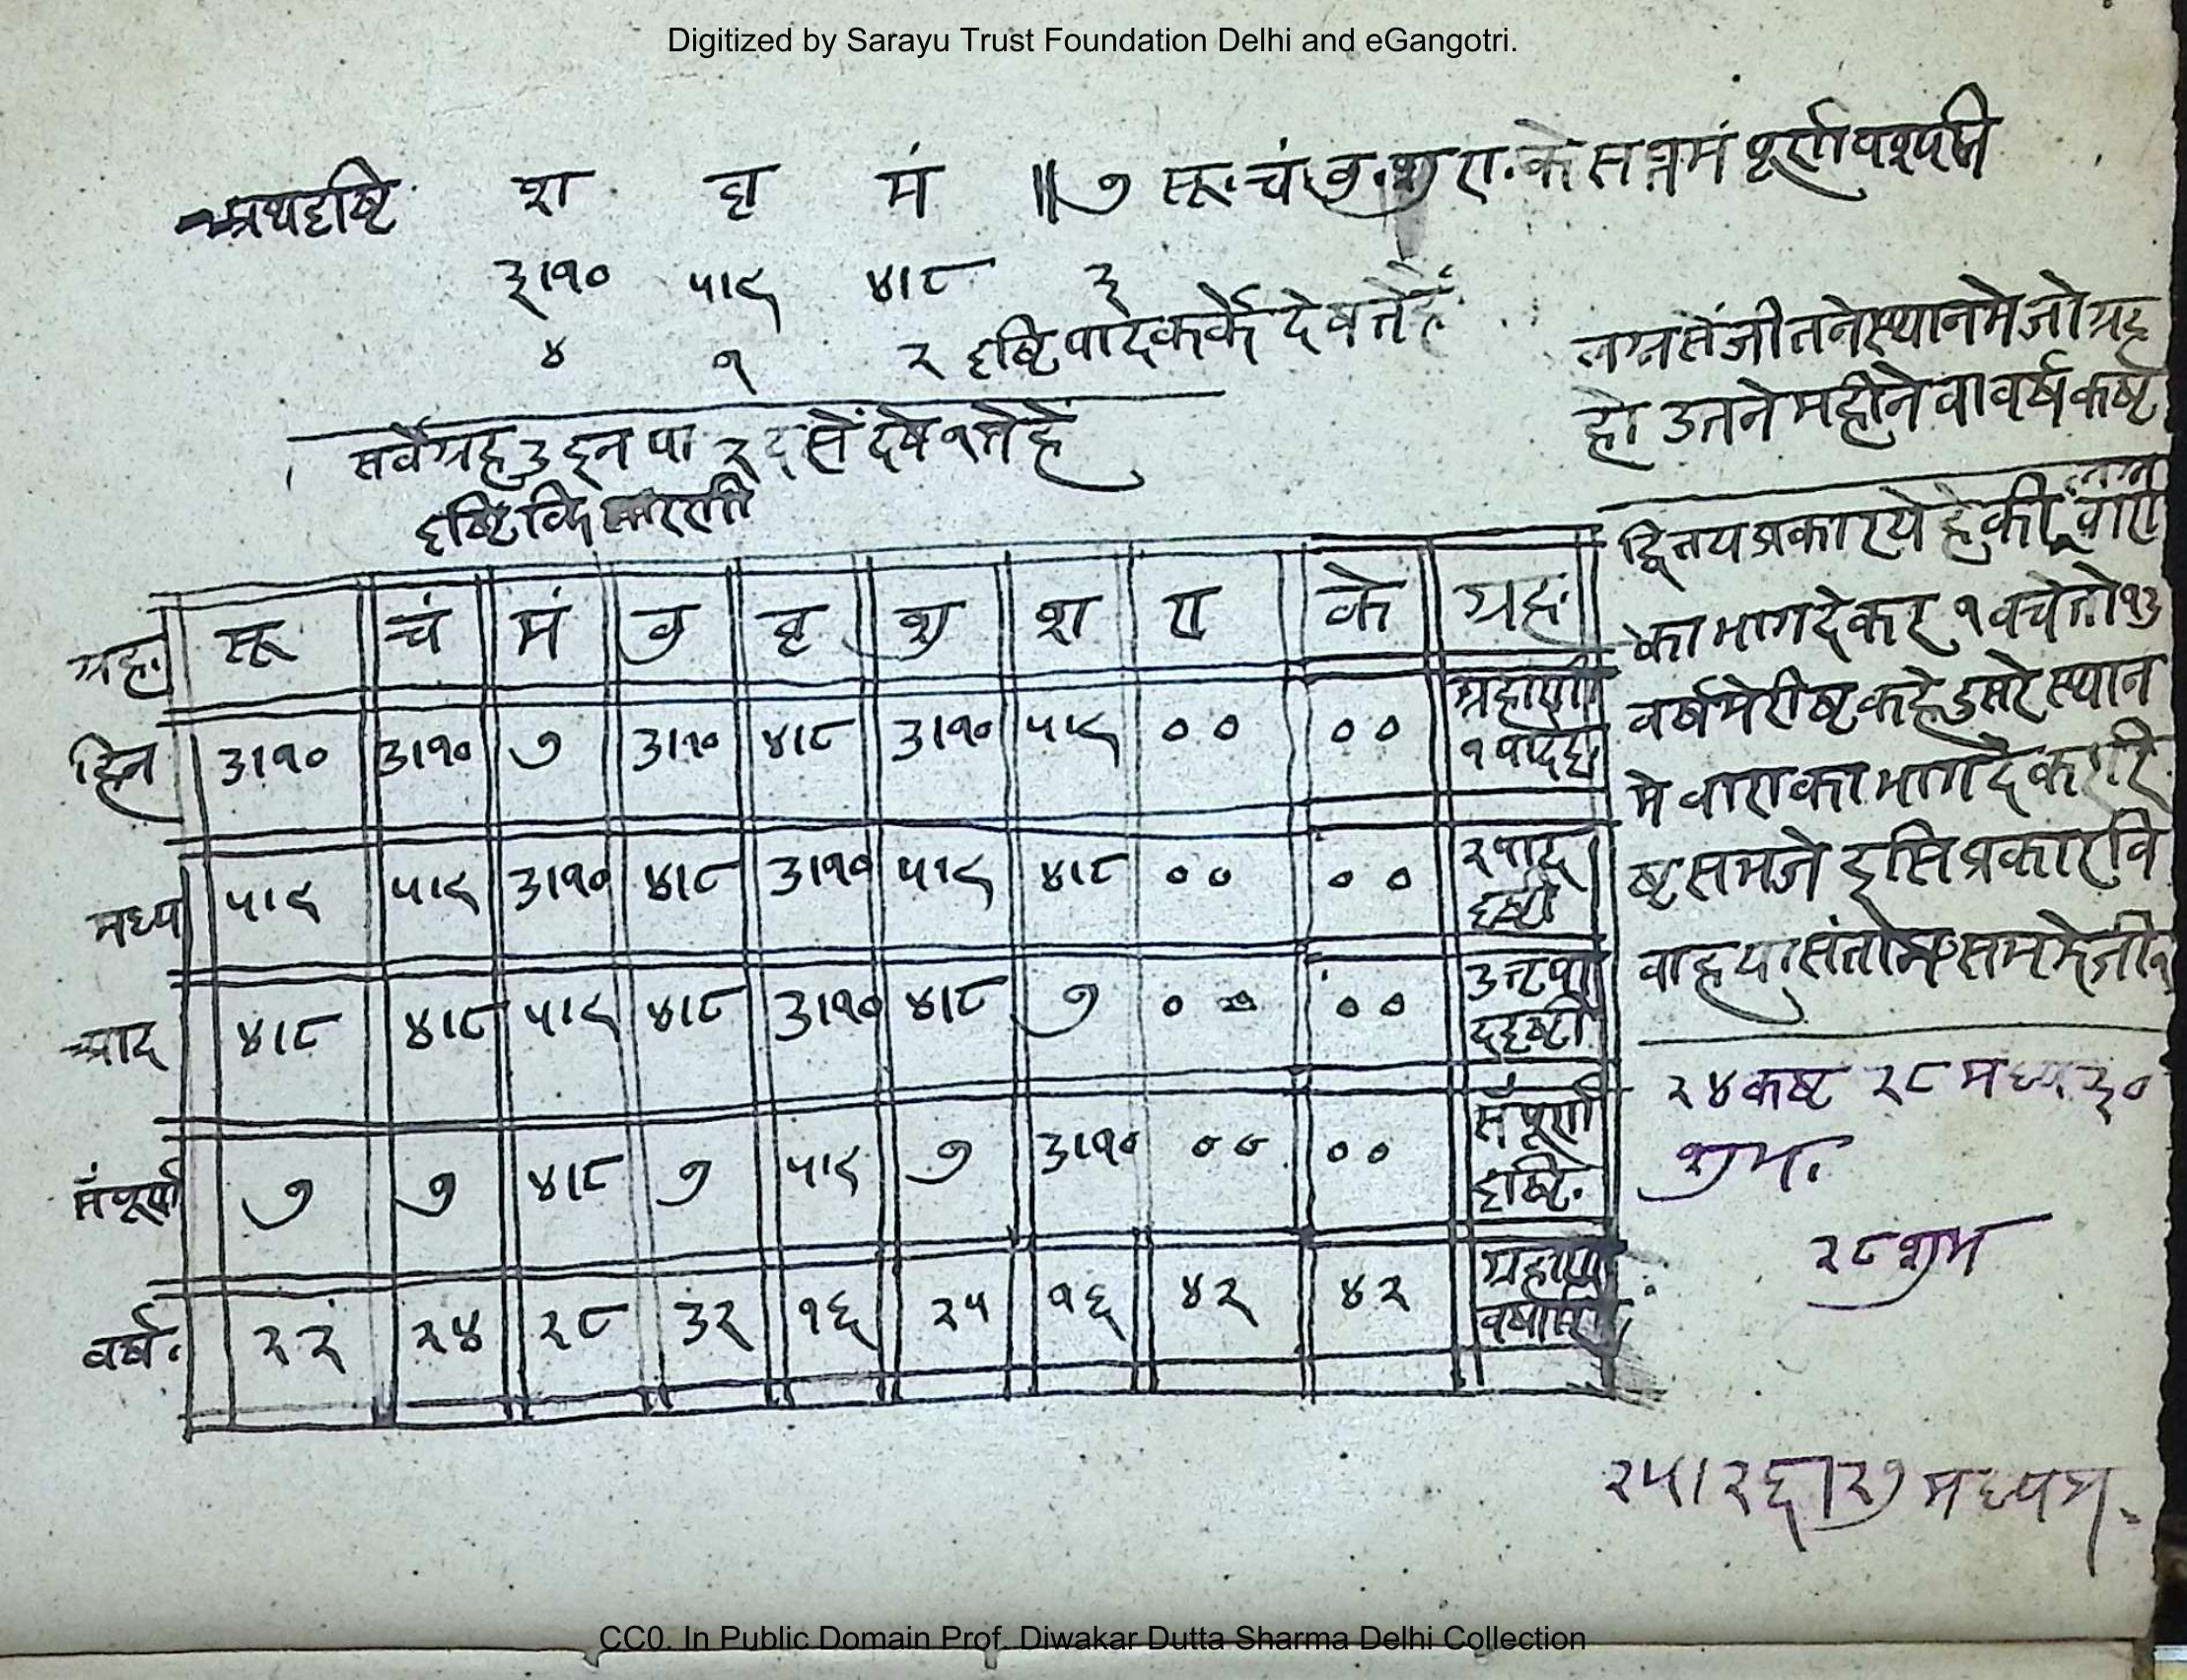 Digitized by Sarayu Trust Foundation Delhi and eGangotri.
अथदृष्टि श बृ मं ॥ ७ सू. चं बु. शु रा. के सप्तमं पूर्ण
३।१० ५।९ ४।८ ३
४ १ २ दृष्टि पादकर्के देषते हैं
सर्वेग्रह उ इन पा २ द सें देषे १ ते हें
दृष्टि
ग्रह. सू चं मं बु बृ शु श रा के ग्रह.
हिन ३।१० ३।१० ७ ३।१० ४।८ ३।१० ५।९ ०० ०० ग्रहाणां १ पाद
मध्य ५।९ ५।९ ३।१० ४।८ ३।१० ५।९ ४।८ ०० ०० २ पाद दृष्टी
४।८ ४।८ ५।९ ४।८ ३।१० ४।८ ७ ०० ०० द दृष्टी
संपूर्ण ७ ७ ४।८ ७ ५।९ ७ ३।१० ०० ०० संपूर्ण दृष्टि.
वर्ष. २२ २४ २८ ३२ १६ २५ १६ ४२ ४२ ग्रहाणां
लग्न सें जीतने स्थान मे जो ग्रह
हो उतने महीने वा वर्ष कष्ट
लग्न
द्वितय प्रकार ये हे की वारा
का भाग देकर १ बचे तो १३
वर्ष मे रीष्ट कहे दुसरे स्थान
मे वारा का भाग दे कर रि
ष्ट समजे इसि प्रकार वि
वाह या संतोम
२४ कष्ट २८ मध्य ३०
शुभ.
२८ शुभ
२५।२६।२७ मध्यम.
CC0. In Public Domain Prof. Diwakar Dutta Sharma Delhi Collection